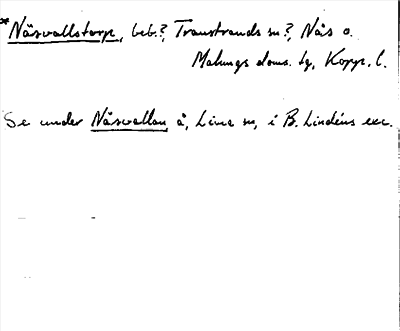 *Näsvallstorp, beb.?, Transtrands sn?, Nås o.
Malungs doms. tg, Kopp. l.
Se under Näsvallen, å, Lima sn, i B. Lindéns exc.